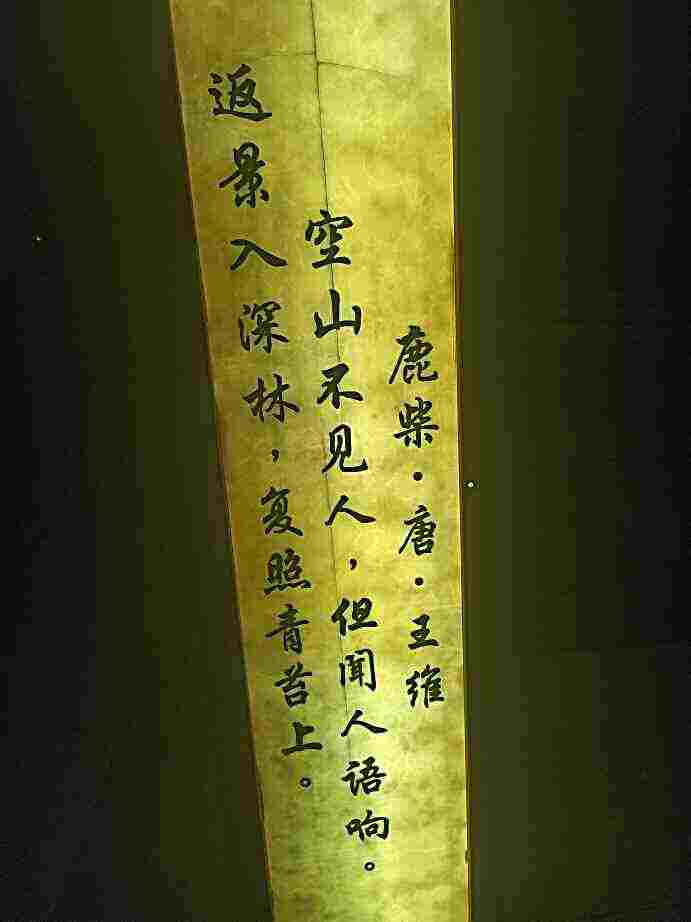 鹿柴·唐·王维
空山不见人，但闻人语响。
返景入深林，复照青苔上。